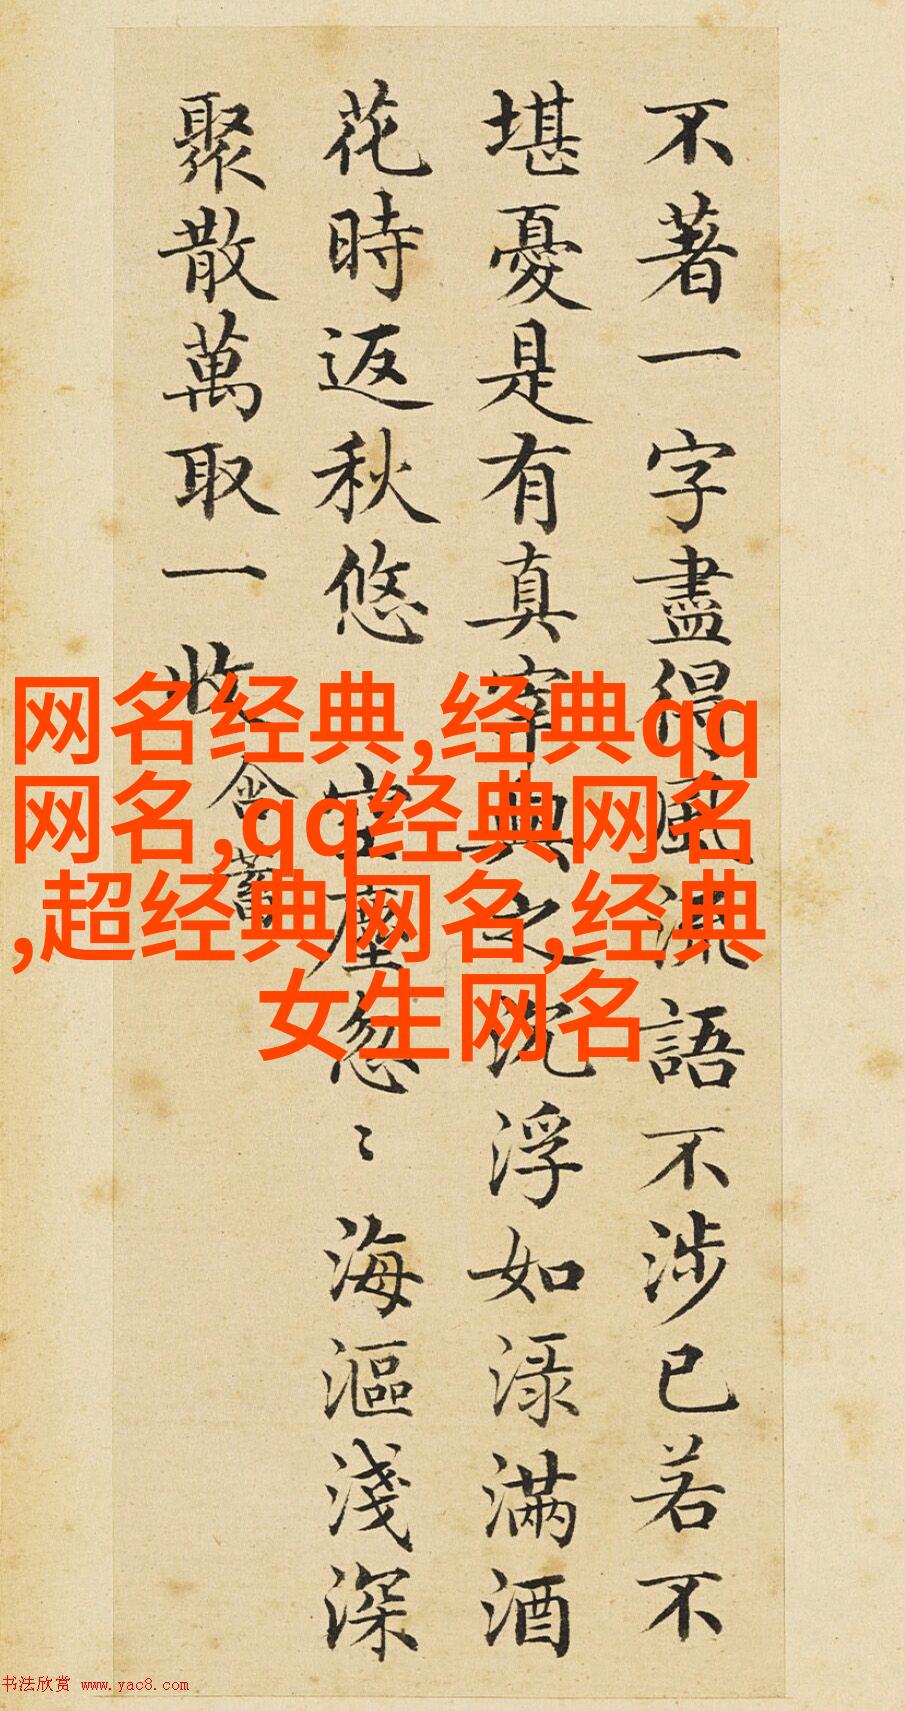 不著一字盡得風流語不涉已若不
堪憂是有真宰典之沈浮如淥滿酒
花時返秋悠空塵忽〻海漚淺深
聚散萬取一收 含蓄
网名经典,经典qq
网名,qq经典网名
,超经典网名,经典
女生网名
书法欣赏 www.yac8.com